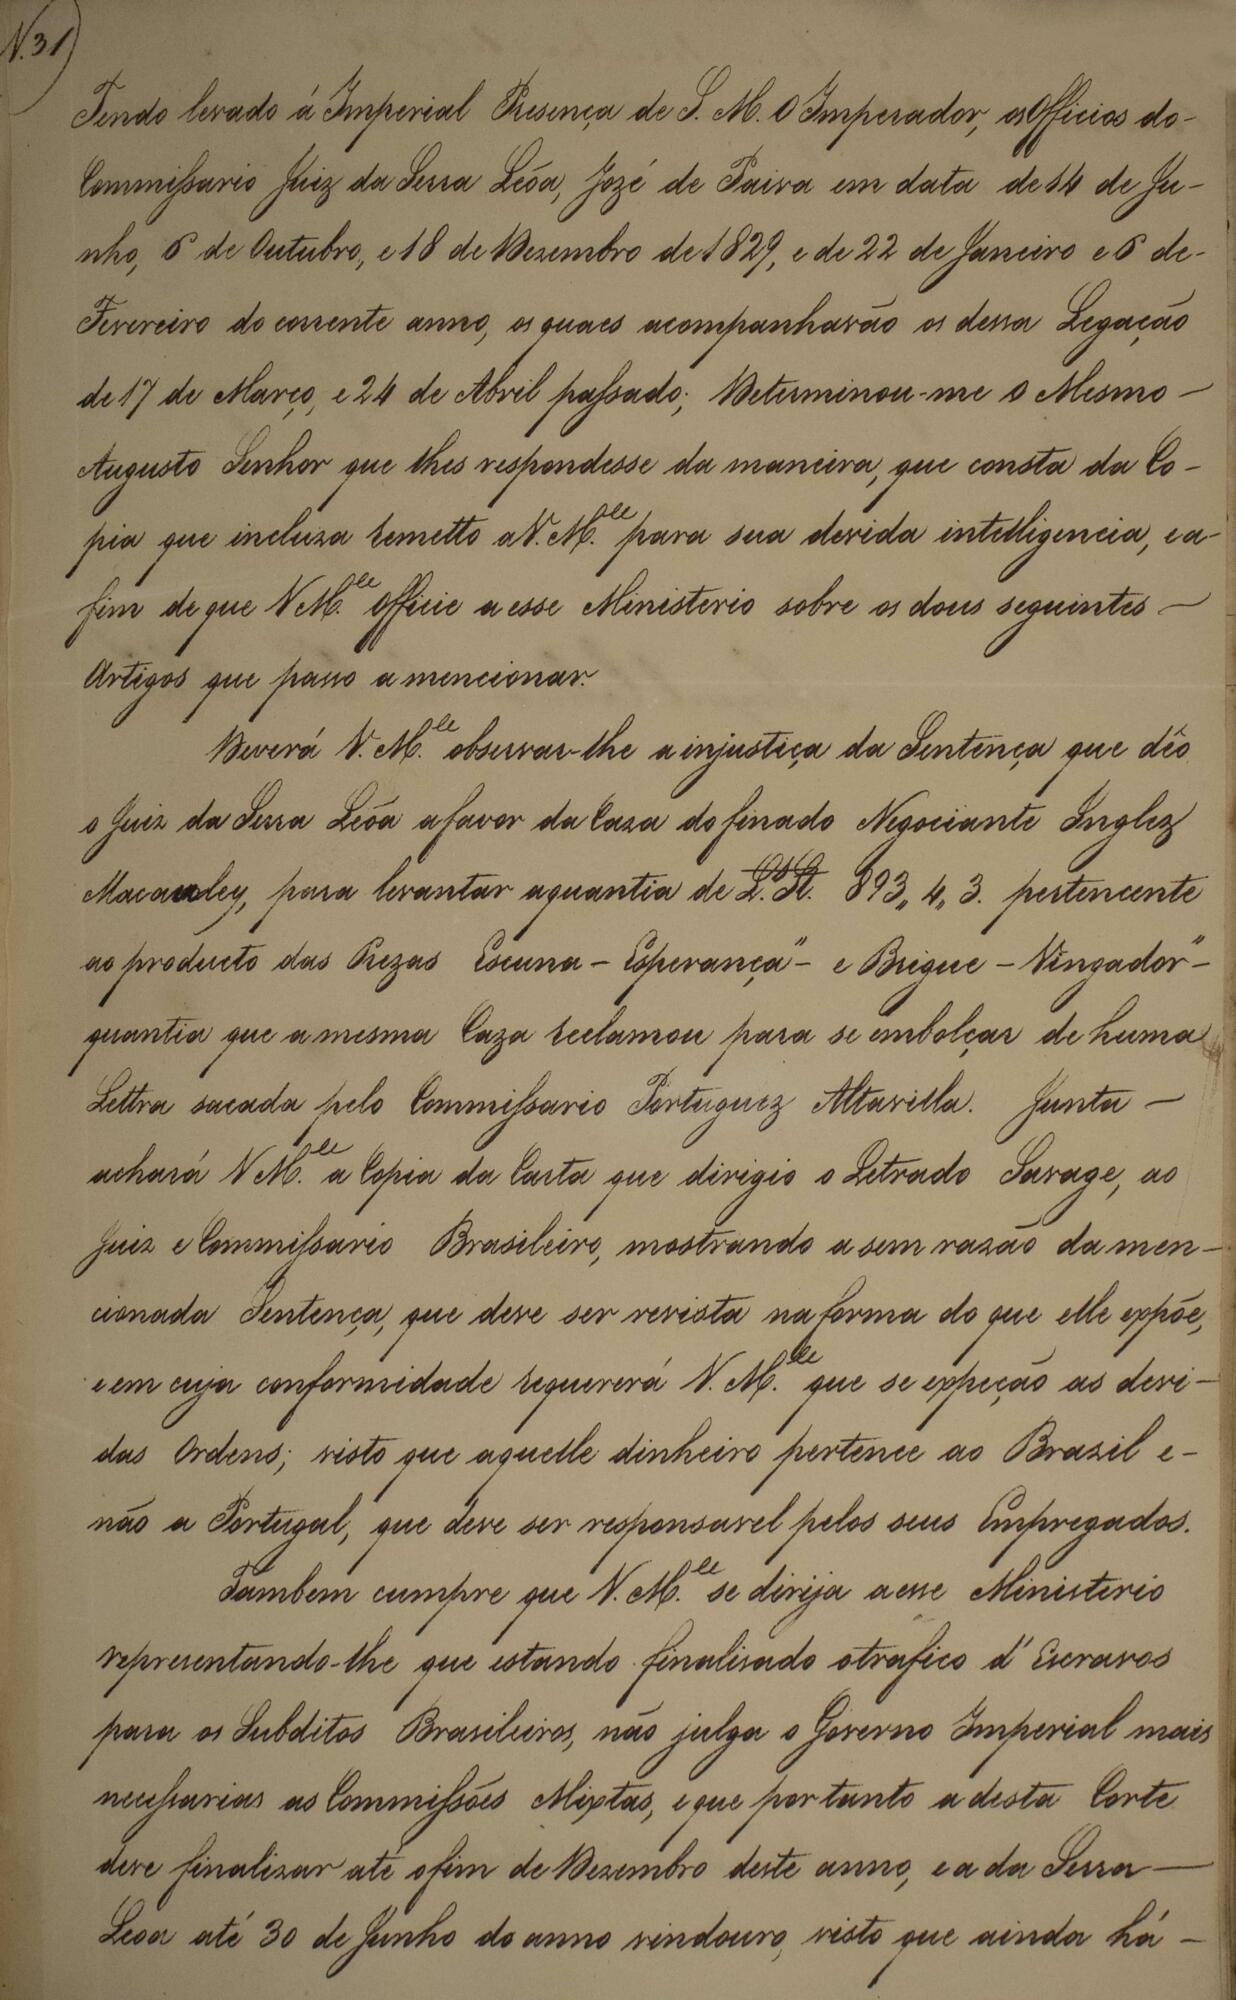 N. 31
Tendo levado á Imperial Presença de S. M. O Imperador, os Officios do-
Commissario Juiz da Serra Leôa, Jozé de Paiva em data de 14 de Ju-
nho, 6 de Outubro, e 18 de Dezembro de 1829, e de 22 de Janeiro e 6 de-
Fevereiro do corrente anno, os quaes acompanharão os dessa Legação
de 17 de Março, e 24 de Abril passado; Determinou-me O Mesmo-
Augusto Senhor que lhes respondesse da maneira, que consta da Co-
pia que incluza remetto a V. M.ce para sua devida intelligencia, e a-
fim de que V M.ce Officie a esse Ministerio sobre os dous seguintes-
Artigos que passo a mencionar.
Deverá V. M.ce observar-lhe a injustiça da Sentença que dêo
o Juiz da Serra Leôa a favor da Caza do finado Negociante Inglez
Macauley, para levantar a quantia de L. St. 893,, 4,, 3. pertencente
ao producto das Prezas Escuna-Esperança"- e Brigue-Vingador"-
quantia que a mesma Caza reclamou para se embolçar de huma
Lettra sacada pelo Commissario Portuguez Altavilla. Junta-
achará V M.ce a Copia da Carta que dirigio o Letrado Savage, ao
Juiz e Commissario Brasileiro, mostrando a sem razão da men-
cionada Sentença, que deve ser revista na forma do que elle expõe,
e em cuja conformidade requererá V. M.ce que se expeção as devi-
das Ordens; visto que aquelle dinheiro pertence ao Brazil e-
não a Portugal, que deve ser responsavel pelos seus Empregados.
Tambem cumpre que V. M.ce se dirija a esse Ministerio
representando-lhe que estando finalisado o trafico d'Escravos
para os Subditos Brasileiros, não julga o Governo Imperial mais
necessarias as Commissões Mixtas, e que portanto a desta Corte
deve finalizar até o fim de Dezembro deste anno, e a da Serra-
Leoa até 30 de Junho do anno vindouro, visto que ainda há-